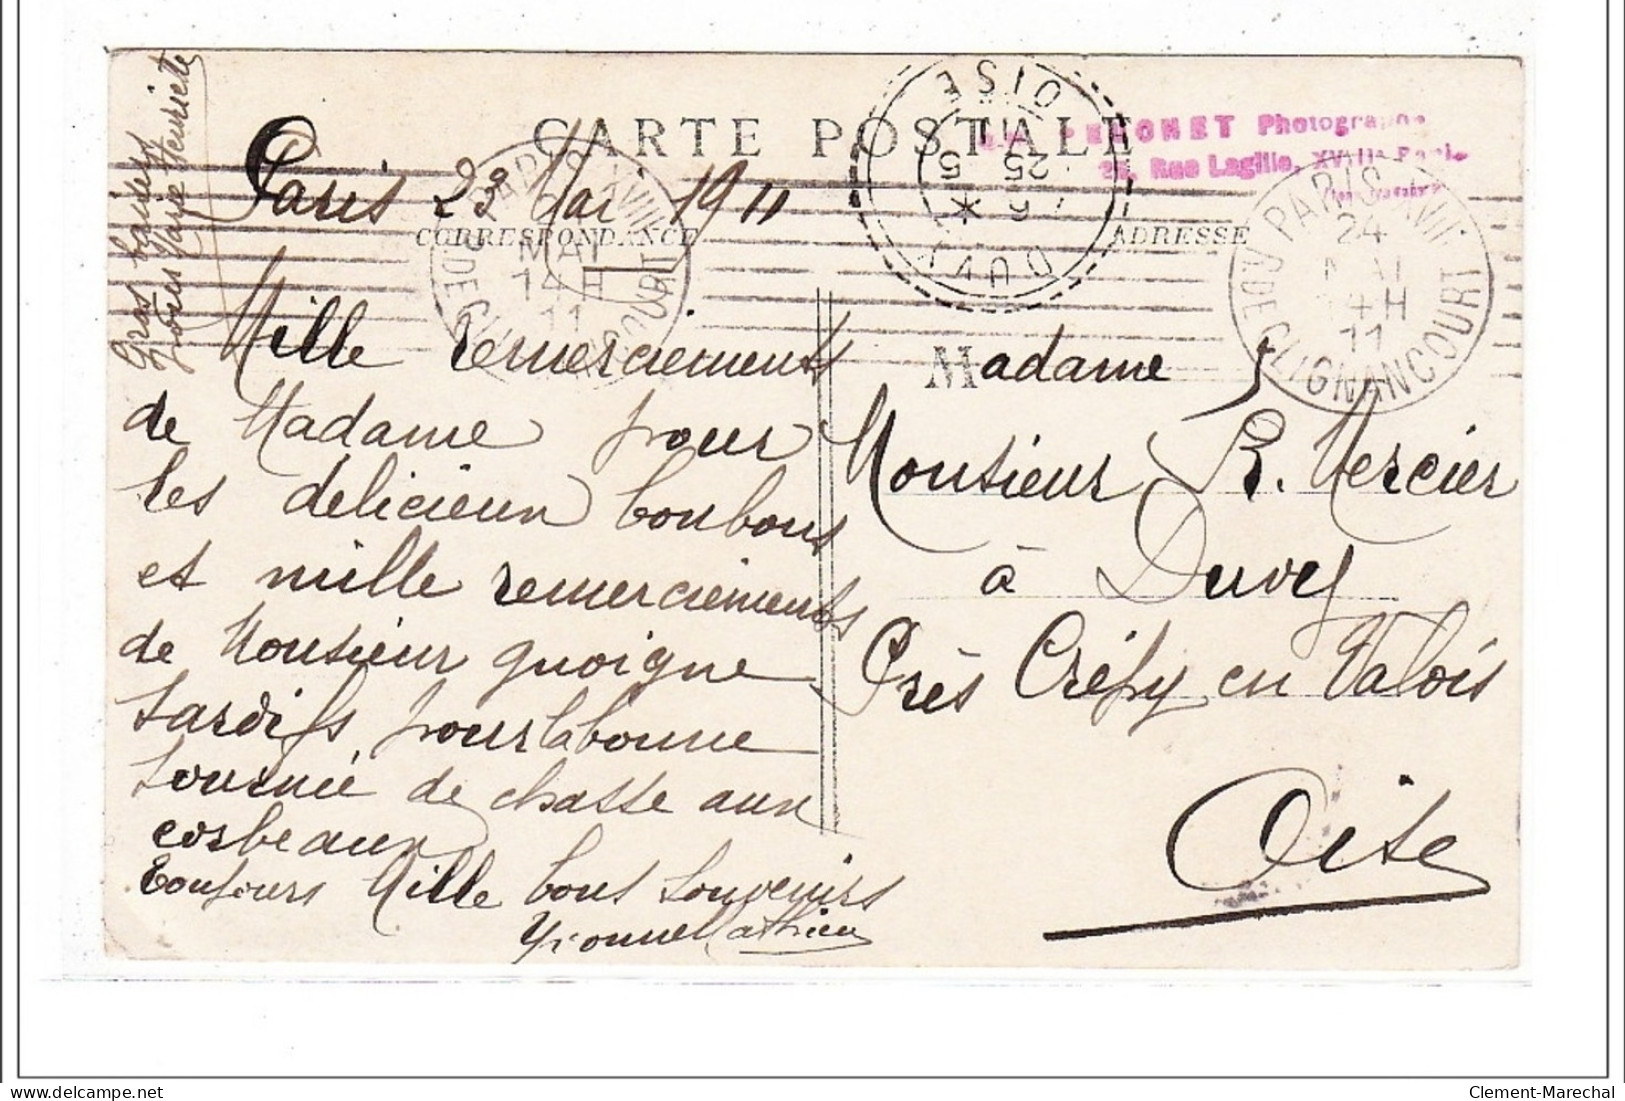 Gros baisers
pour Marie Henriette
CARTE POSTALE
Paris 23 Mai 1911
CORRESPONDANCE
ADRESSE
PARIS XVIII
24
MAI
14H
11
BOUV DE CLIGNANCOURT
OISE
25
5
PERONET Photographe
25, Rue Lagille, XVIIIe Paris
PARIS XVIII
MAI
14H
11
Mille remerciements
de Madame pour
les délicieux bonbons
et mille remerciements
de Monsieur quoique
tardifs pour la bonne
tournée de chasse aux
corbeaux
Toujours Mille bons souvenirs
Yvonne Mathieu
Madame &
Monsieur R. Mercier
à Duvy
Près Crépy en Valois
Oise
www.delcampe.net
Clement-Marechal